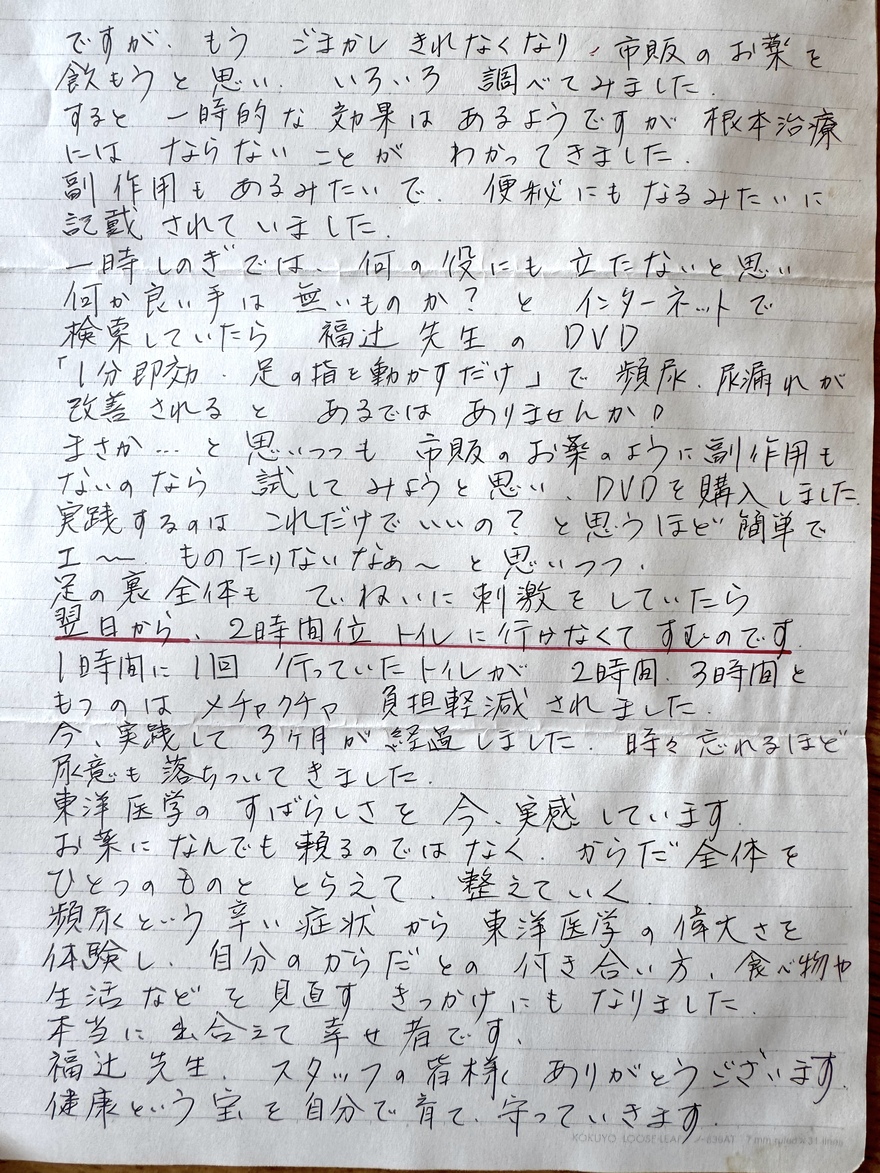 ですが、もう ごまかし きれなくなり、市販のお薬を
飲もうと思い、いろいろ 調べてみました。
すると 一時的な 効果は あるようですが 根本治療
には ならない ことが わかってきました。
副作用も あるみたいで、便秘にもなるみたいに
記載されていました。
一時しのぎでは、何の役にも 立たないと思い
何か良い手は 無いものか？と インターネットで
検索していたら 福辻 先生の DVD
「1分即効・足の指を動かすだけ」で 頻尿、尿漏れが
改善されると あるでは ありませんか!
まさか…と 思いつつも 市販のお薬のように副作用も
ないのなら 試してみようと思い、DVDを購入しました。
実践するのは これだけでいいの？と思うほど簡単で
エ〜 ものたりないなぁ〜と思いつつ、
足の裏全体も ていねいに刺激をしていたら
翌日から、2時間位 トイレに行けなくてすむのです。
1時間に1回 行っていたトイレが 2時間、3時間と
もつのは メチャクチャ 負担軽減されました。
今、実践して 3ヶ月が経過しました。時々忘れるほど
尿意も落ちついてきました。
東洋医学の すばらしさを 今、実感しています。
お薬になんでも頼るのではなく、からだ全体を
ひとつのものと とらえて、整えていく。
頻尿という辛い症状 から 東洋医学の偉大さを
体験し、自分のからだとの 付き合い方、食べ物や
生活などを見直す きっかけにも なりました。
本当に出会えて 幸せ者です。
福辻 先生、スタッフの皆様 ありがとうございます。
健康という宝を自分で育て、守っていきます。
KOKUYO LOOSE-LEAF ノ-836AT 7mm ruled×31 lines